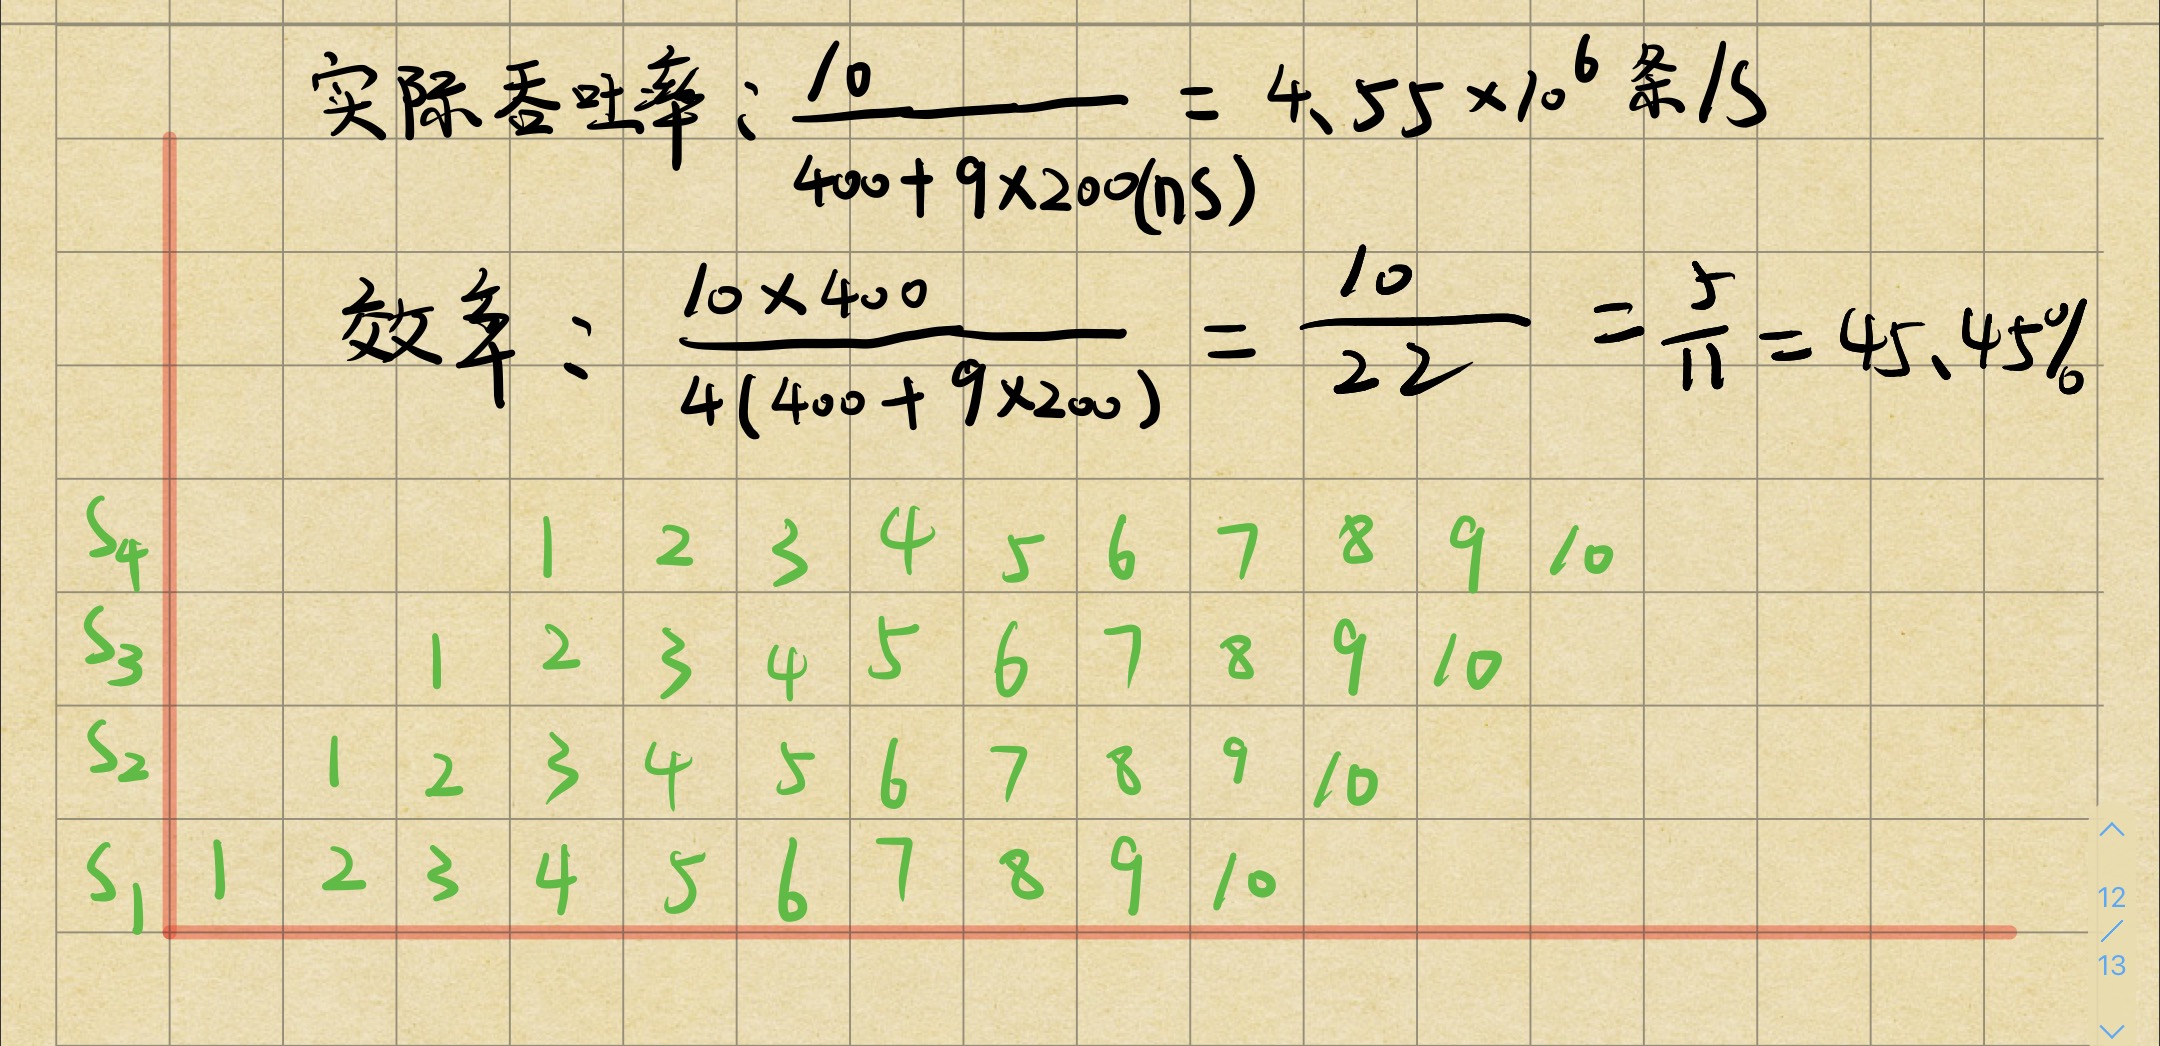 实际吞吐率：10/(400+9×200(ns)) = 4.55×10⁶ 条/S
效率：10×400/4(400+9×200) = 10/22 = 5/11 = 45.45%
S₄ 1 2 3 4 5 6 7 8 9 10
S₃ 1 2 3 4 5 6 7 8 9 10
S₂ 1 2 3 4 5 6 7 8 9 10
S₁ 1 2 3 4 5 6 7 8 9 10
12
/
13